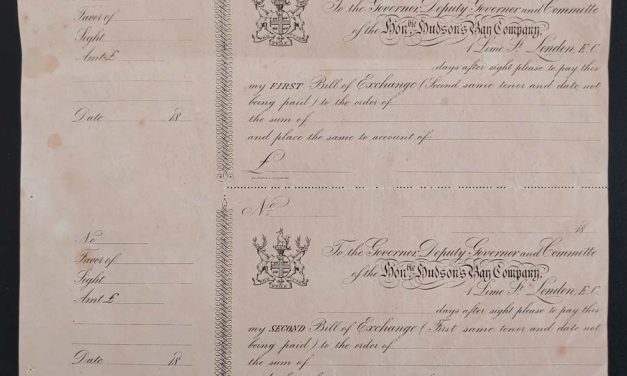 Favor of
Sight
Amt £
Date 18
To the Governor, Deputy Governor and Committe
of the Honble Hudson's Bay Company,
1 Lime St. London, E.C.
days after sight please to pay this
my FIRST Bill of Exchange (Second same tenor and date not
being paid) to the order of
the sum of
and place the same to account of
£
No.
18
No
Favor of
Sight
Amt £
Date 18
To the Governor, Deputy Governor and Committe
of the Honble Hudson's Bay Company,
1 Lime St. London, E.C.
days after sight please to pay this
my SECOND Bill of Exchange (First same tenor and date not
being paid) to the order of
the sum of